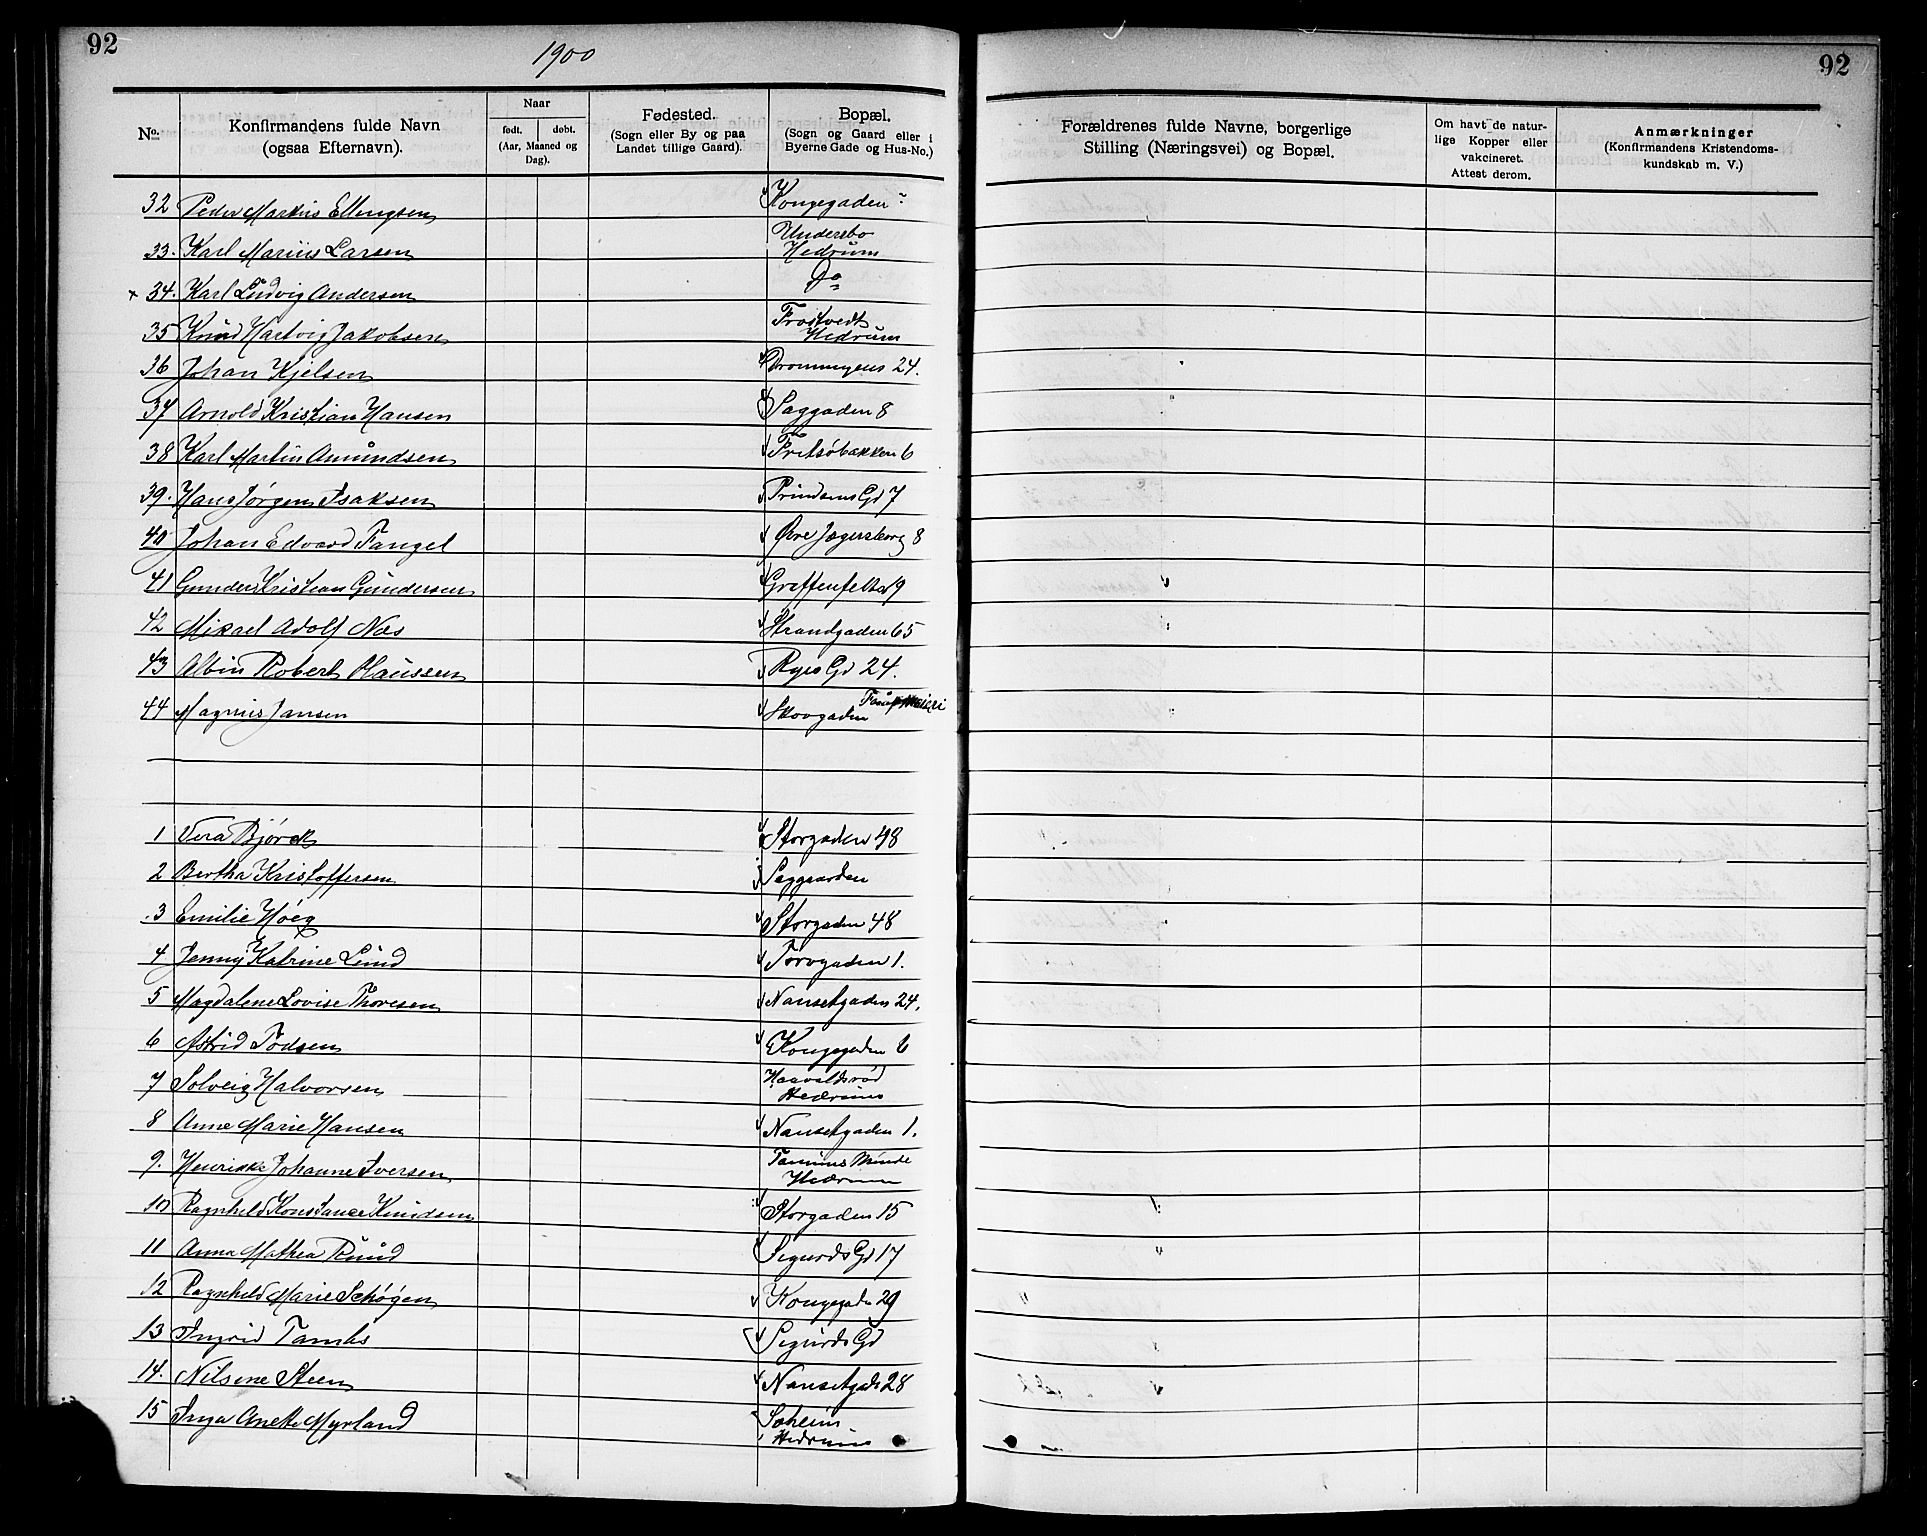 92
1900
No.
Konfirmandens fulde Navn
(ogsaa Efternavn).
Naar
født. døbt.
(Aar, Maaned og
Dag).
Fødested.
(Sogn eller By og paa
Landet tillige Gaard).
Bopæl.
(Sogn og Gaard eller i
Byerne Gade og Hus-No.)
32 Peder Markus Ellingsen Kongegaden
33. Karl Marius Larsen Undersbo
Hedrum
34. Karl Ludvig Andersen Do
35 Knud Hartvig Jakobsen Frostvedt
Hedrum
36 Johan Kjelsen Dronningens 24.
37 Arnold Kristian Hansen Saggaden 8
38 Karl Martin Amundsen Fritsøbakken 6
39. Hans Jørgen Isaksen Prindsens Gd 7
40 Johan Edvard Tangel Øvre Jegersborg 8
41 Gunder Kristian Gundersen Greffenfelds 9
42 Mikael Adolf Næs Strandgaden 65
43 Albin Robert Claussen Ryes Gd 24.
44 Magnus Jansen Skovgaden
1 Vera Bjørck Storgaden 48
2 Bertha Kristoffersen Saggaarden
3 Emilie Høeg Storgaden 48
4 Jenny Katrine Lund Torvgaden 1.
5 Magdalene Lovise Thoresen Nansetgaden 24.
6 Astrid Todsen Kongegaden 6
7 Solveig Halvorsen Haavaldsrød
Hedrum
8 Anne Marie Hansen Nansetgaden 1.
9. Henrikke Johanne Iversen Tanums Minde
Hedrum
10 Ragnhild Konstance Knudsen Storgaden 15
11 Anna Mathea Ruud Sigurds Gd 17
12 Ragnhild Marie Schøgen Kongegaden 29
13 Ingrid Tambs Sigurds Gd
14. Nilsine Steen Nansetgade 28
15 Inga Anette Myrland Soheim
Hedrum
92
Forældrenes fulde Navne, borgerlige
Stilling (Næringsvei) og Bopæl.
Om havt de natur-
lige Kopper eller
vakcineret.
Attest derom.
Anmærkninger
(Konfirmandens Kristendoms-
kundskab m. V.)